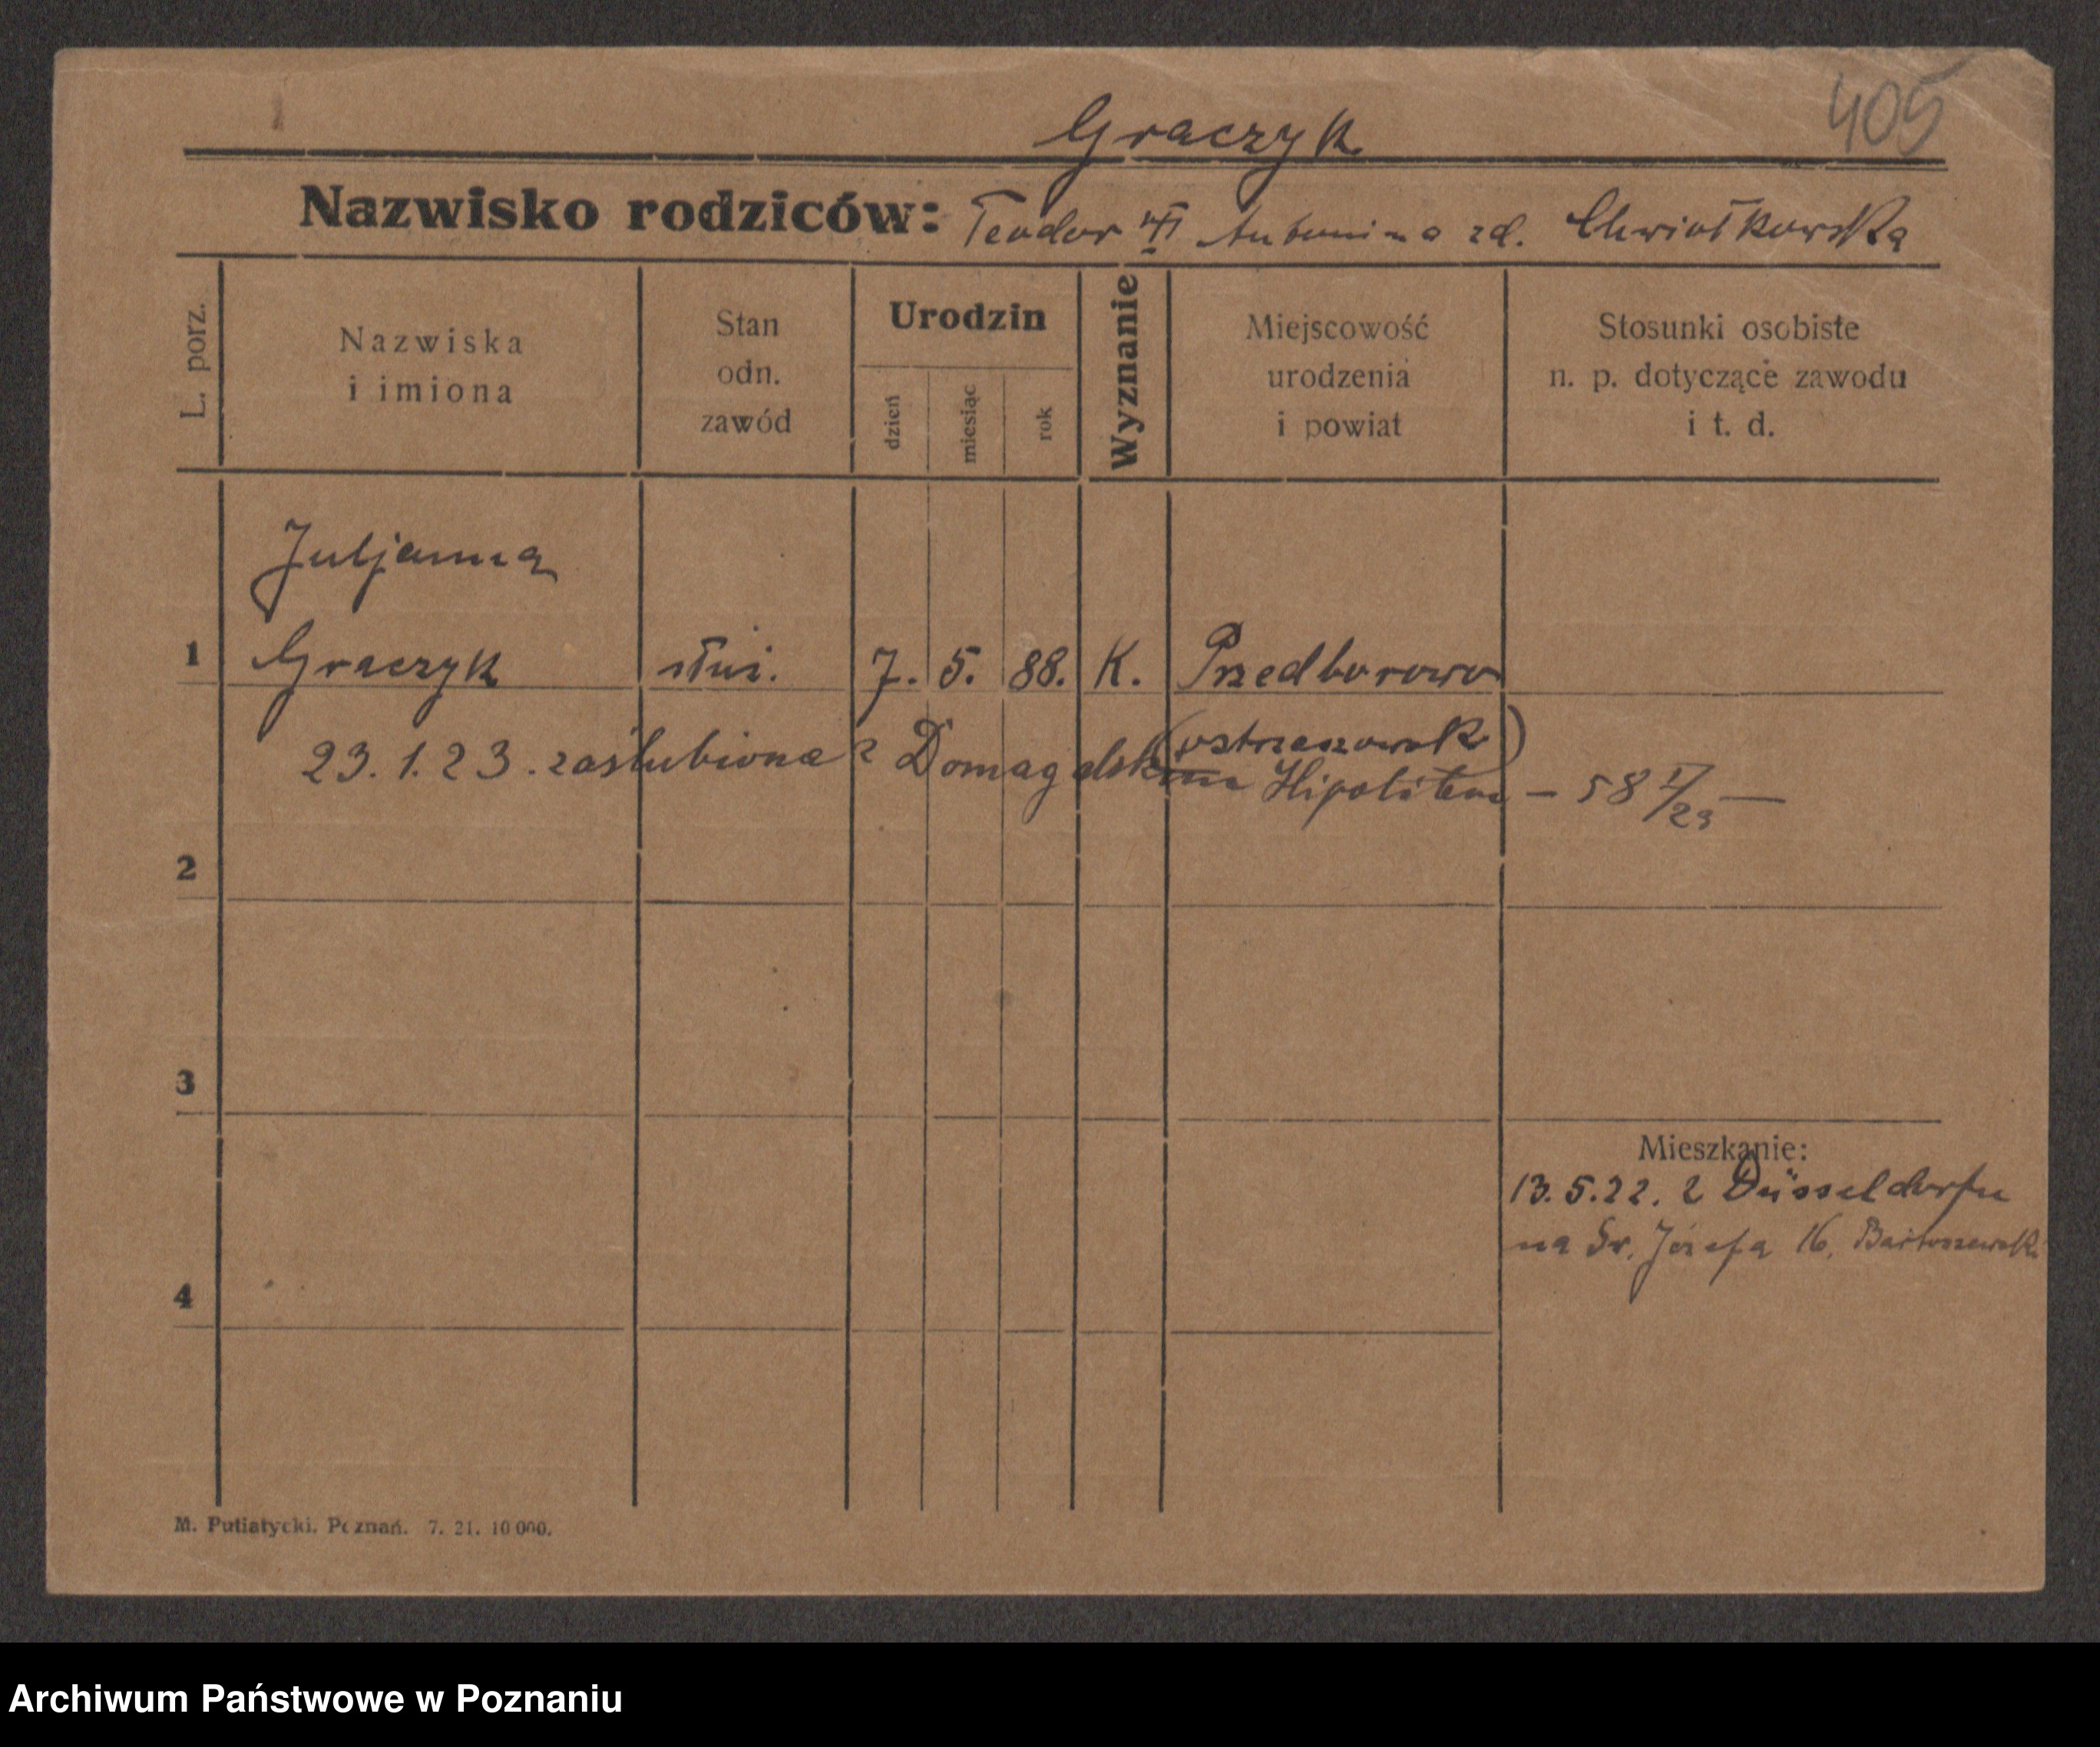 405
Graczyk
Nazwisko rodziców: Teodor Antonina zd. Chwiołkowska
L. porz.
Nazwiska
i imiona
Stan
odn.
zawód
Urodzin
dzień
miesiąc
rok
Wyznanie
Miejscowość
urodzenia
i powiat
Stosunki osobiste
n. p. dotyczące zawodu
i t. d.
Juljanna
1 Graczyk służ. 7. 5. 88. K. Przedborowo
(ostrzeszowsk)
23.1.23. zaślubiona z Domagalskim Hipolitem – 58 I/23 –
2
3
Mieszkanie:
13.5.22. z Düsseldorfu
na Św. Józefa 16, Bartoszewski
4
M. Putiatycki. Poznań. 7. 21. 10 000.
Archiwum Państwowe w Poznaniu